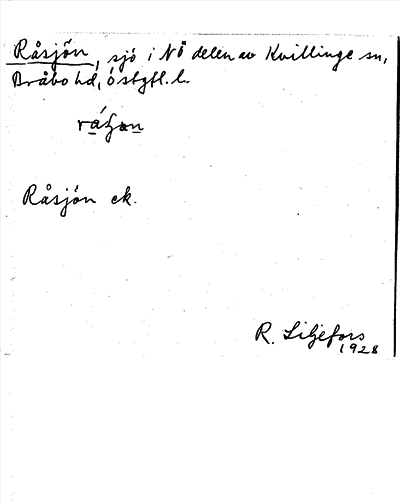 Råsjön, sjö i NÖ delen av Kvillinge sn,
Bråbo hd, Östgtl. l.
Råsjön ek.
R. Liljefors
1928